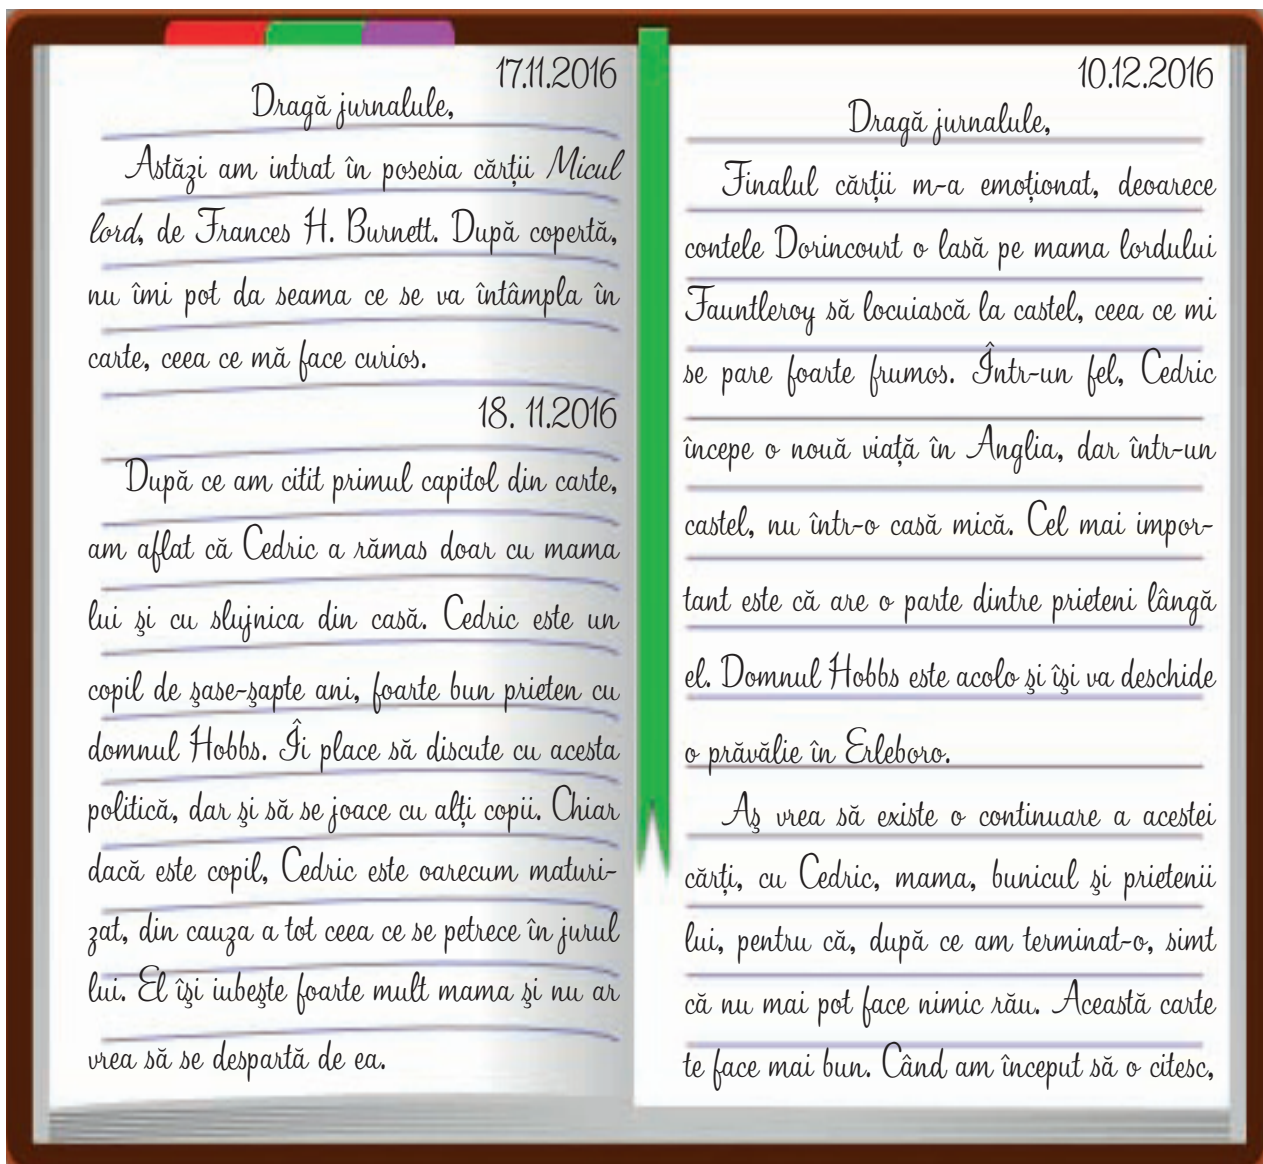 17.11.2016
Dragă jurnalule,
Astăzi am intrat în posesia cărții Micul
lord, de Frances H. Burnett. După copertă,
nu îmi pot da seama ce se va întâmpla în
carte, ceea ce mă face curios.
18. 11.2016
După ce am citit primul capitol din carte,
am aflat că Cedric a rămas doar cu mama
lui şi cu slujnica din casă. Cedric este un
copil de şase-şapte ani, foarte bun prieten cu
domnul Hobbs. Îi place să discute cu acesta
politică, dar şi să se joace cu alți copii. Chiar
dacă este copil, Cedric este oarecum maturi-
zat, din cauza a tot ceea ce se petrece în jurul
lui. El îşi iubeşte foarte mult mama şi nu ar
vrea să se despartă de ea.
10.12.2016
Dragă jurnalule,
Finalul cărții m-a emoționat, deoarece
contele Dorincourt o lasă pe mama lordului
Fauntleroy să locuiască la castel, ceea ce mi
se pare foarte frumos. Într-un fel, Cedric
începe o nouă viață în Anglia, dar într-un
castel, nu într-o casă mică. Cel mai impor-
tant este că are o parte dintre prieteni lângă
el. Domnul Hobbs este acolo şi îşi va deschide
o prăvălie în Erleboro.
Aş vrea să existe o continuare a acestei
cărți, cu Cedric, mama, bunicul şi prietenii
lui, pentru că, după ce am terminat-o, simt
că nu mai pot face nimic rău. Această carte
te face mai bun. Când am început să o citesc,